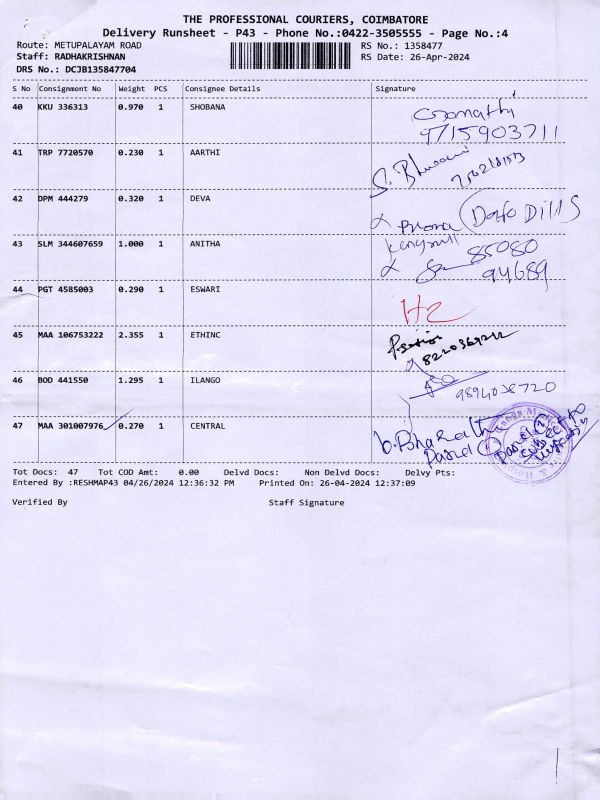 THE PROFESSIONAL COURIERS, COIMBATORE
Delivery Runsheet - P43 - Phone No.:0422-3505555 - Page No.:4
Route: METUPALAYAM ROAD RS No.: 1358477
Staff: RADHAKRISHNAN RS Date: 26-Apr-2024
DRS No.: DCJB135847704
S No Consignment No Weight PCS Consignee Details Signature
40 KKU 336313 0.970 1 SHOBANA Gomathi
9715903711
41 TRP 7720570 0.230 1 AARTHI
42 DPM 444279 0.320 1 DEVA
43 SLM 344607659 1.000 1 ANITHA 85080
94689
44 PGT 4585003 0.290 1 ESWARI
45 MAA 106753222 2.355 1 ETHINC
46 BOD 441550 1.295 1 ILANGO 9894038720
47 MAA 301007976 0.270 1 CENTRAL b.Bharatha
Tot Docs: 47 Tot COD Amt: 0.00 Delvd Docs: Non Delvd Docs: Delvy Pts:
Entered By :RESHMAP43 04/26/2024 12:36:32 PM Printed On: 26-04-2024 12:37:09
Verified By Staff Signature